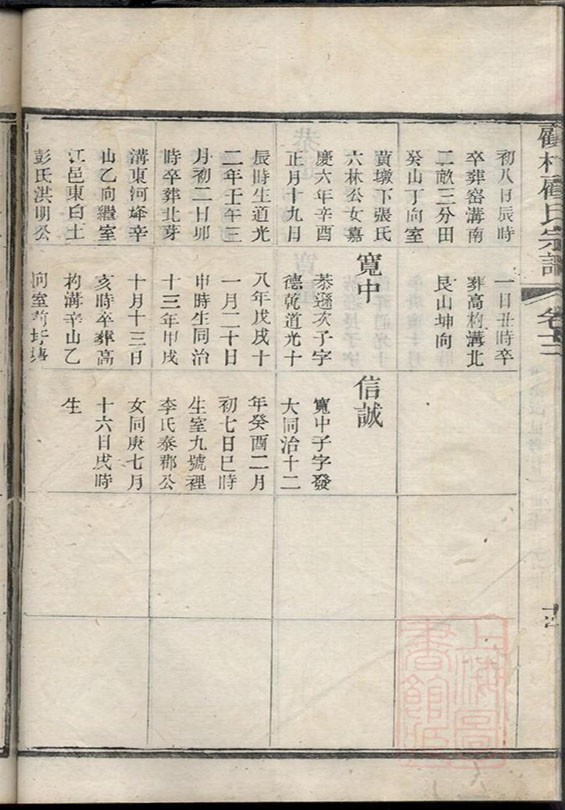 顧村顧氏宗譜
初八日辰時
卒葬窑溝南
二畝三分田
癸山丁向室
黃墩下張氏
六林公女嘉
慶六年辛酉
正月十九月
辰時生道光
二年壬午三
月初二日卯
時卒葬北芽
溝東河峰辛
山乙向繼室
江邑東白土
彭氏洪明公
一日丑時卒
葬高枃溝北
艮山坤向
寬中
恭遜次子字
德乾道光十
八年戊戌十
一月二十日
申時生同治
十三年甲戌
十月十三日
亥時卒葬高
枃溝辛山乙
向室前圩
信誠
寬中子字發
大同治十二
年癸酉二月
初七日巳時
生室九號裡
李氏泰郡公
女同庚七月
十六日戌時
生
上海圖
書館藏